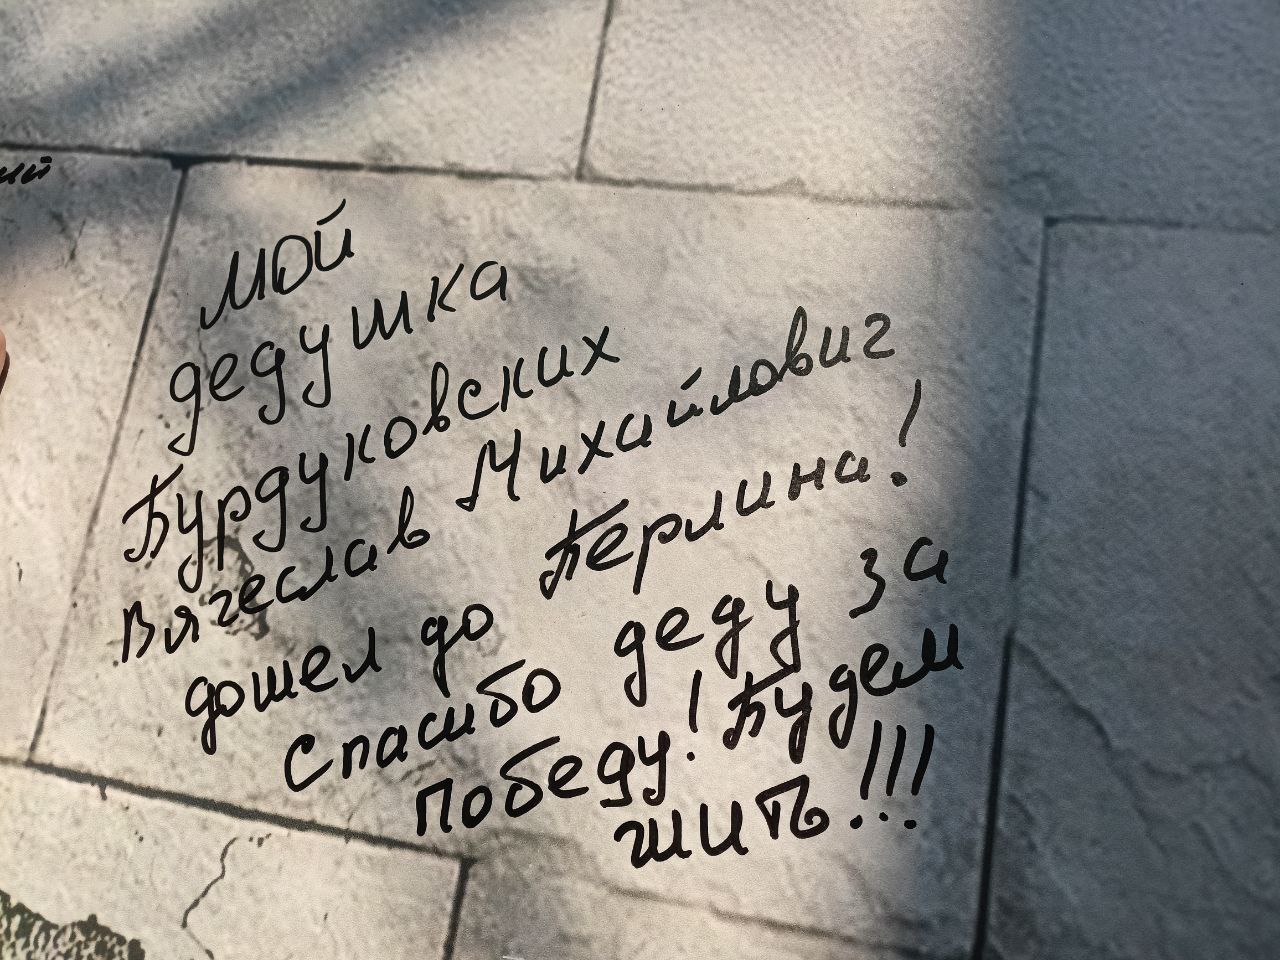 мой
дедушка
Бурдуковских
Вячеслав Михайлович
дошел до Берлина!
Спасибо деду за
победу! Будем
жить!!!